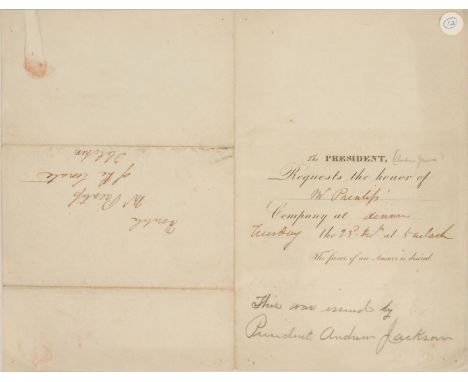 12
The PRESIDENT, (Andrew Jackson)
Requests the honor of
Mr Prentiss'
Company at dinner
Tuesday the 23d at 5 o'clock
The favor of an Answer is desired
This was issued by
President Andrew Jackson
Mr Prentiss
of the Senate